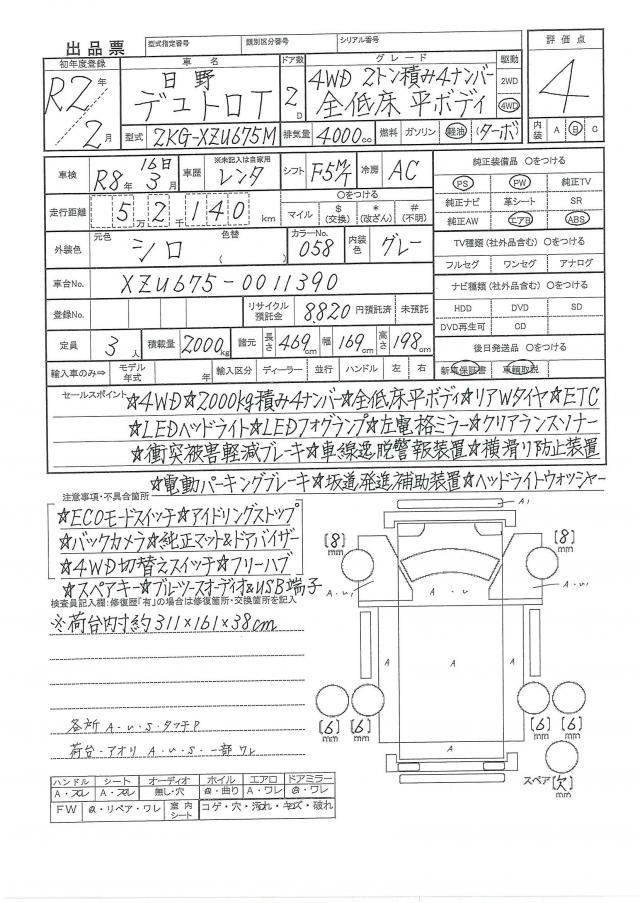 出品票
型式指定番号 類別区分番号 シリアル番号
初年度登録 車名 ドア数 グレード 駆動 評価点
R2年 2月 日野 デュトロT 2D 4WD 2トン積み4ナンバー 全低床 平ボディ 2WD 4WD 4
型式 2KG-XZU675M 排気量 4000cc 燃料 ガソリン 軽油 (ターボ) 内装 A B C
車検 R8年 16日 3月 車歴 ※未記入は自家用 レンタ シフト F5M/T 冷房 AC
走行距離 5万2千140km マイル $(交換) *(改ざん) #(不明) 〇をつける
外装色 元色 シロ 色替( ) カラーNo. 058 内装色 グレー
車台No. XZU675-0011390
登録No. リサイクル預託金 8,820円預託済 未預託
定員 3人 積載量 2000kg 諸元 長さ469cm 幅169cm 高さ198cm
輸入車のみ⇒ モデル年式 年 輸入区分 ディーラー 並行 ハンドル 左 右
純正装備品 〇をつける
PS PW 純正TV
純正ナビ 革シート SR
純正AW エアB ABS
TV種類(社外品含む) 〇をつける
フルセグ ワンセグ アナログ
ナビ種類(社外品含む) 〇をつける
HDD DVD SD
DVD再生可 CD
後日発送品 〇をつける
新車保証書 車輌取説
セールスポイント ☆4WD☆2000kg積み4ナンバー☆全低床平ボディ☆リアWタイヤ☆ETC
☆LEDヘッドライト☆LEDフォグランプ☆左電格ミラー☆クリアランスソナー
☆衝突被害軽減ブレーキ☆車線逸脱警報装置☆横滑り防止装置
☆電動パーキングブレーキ☆坂道発進補助装置☆ヘッドライトウォッシャー
注意事項・不具合箇所
☆ECOモードスイッチ☆アイドリングストップ
☆バックカメラ☆純正マット&ドアバイザー
☆4WD切替えスイッチ☆フリーハブ
☆スペアキー☆ブルーツースオーディオ&USB端子
検査員記入欄:修復歴「有」の場合は修復箇所・交換箇所を記入
※荷台内寸約311×161×38cm
各所 A・U・S・タッチP
荷台・アオリ A・U・S・一部ワレ
A1
[8]mm [8]mm
A・U1 A・U A・U1
A A A
[6]mm [6]mm [6]mm [6]mm
A
スペア[欠]mm
ハンドル シート オーディオ ホイル エアロ ドアミラー
A・スレ A・スレ 無し・穴 @・曲り A・ワレ @・ワレ
FW @・リペア・ワレ 室内シート コゲ・穴・汚れ・キズ・破れ